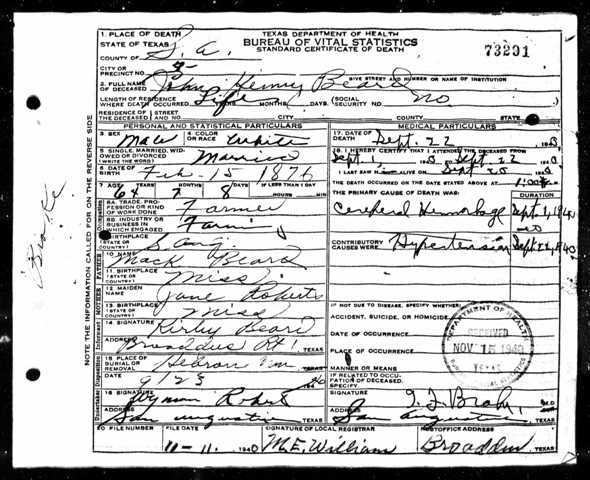 1. PLACE OF DEATH
STATE OF TEXAS
TEXAS DEPARTMENT OF HEALTH
BUREAU OF VITAL STATISTICS
STANDARD CERTIFICATE OF DEATH
73291
COUNTY OF S. A.
CITY OR
PRECINCT NO.
GIVE STREET AND NUMBER OR NAME OF INSTITUTION
2. FULL NAME
OF DECEASED John Henry Beard
LENGTH OF RESIDENCE
WHERE DEATH OCCURRED Life YEARS MONTHS DAYS. (SOCIAL
SECURITY NO. no
RESIDENCE OF
THE DECEASED STREET CITY COUNTY STATE
PERSONAL AND STATISTICAL PARTICULARS
MEDICAL PARTICULARS
3. SEX Male 4. COLOR
OR RACE White
17. DATE OF
DEATH Sept. 22
5. SINGLE, MARRIED, WID-
OWED OR DIVORCED
(WRITE THE WORD) Married
18. I HEREBY CERTIFY THAT I ATTENDED THE DECEASED FROM
Sept. 1, Sept. 22
6. DATE OF
BIRTH Feb. 15 1876
I LAST SAW H ALIVE ON Sept 20
7. AGE 64 7 8 IF LESS THAN 1 DAY
THE DEATH OCCURRED ON THE DATE STATED ABOVE AT 1:00
8A. TRADE, PRO-
FESSION OR KIND
OF WORK DONE Farmer
THE PRIMARY CAUSE OF DEATH WAS: DURATION
8B. INDUSTRY OR
BUSINESS IN
WHICH ENGAGED
Cereperal Hemorhage Sept. 1, 1940
9. BIRTHPLACE
(STATE OR
COUNTRY) S. Aug.
CONTRIBUTORY
CAUSES WERE: Hypertension
10. NAME Mack Beard
11. BIRTHPLACE
(STATE OR
COUNTRY) Miss
12. MAIDEN
NAME Jane Roberts
13. BIRTHPLACE
(STATE OR
COUNTRY) Miss
IF NOT DUE TO DISEASE, SPECIFY WHETHER:
ACCIDENT, SUICIDE, OR HOMICIDE
DATE OF OCCURRENCE
14. SIGNATURE Kirby Beard
ADDRESS Broaddus Rt 1 TEXAS
PLACE OF OCCURRENCE
15. PLACE OF
BURIAL OR
REMOVAL Hebron
MANNER OR MEANS
DATE 9/23 40
IF RELATED TO OCCU-
PATION OF DECEASED,
SPECIFY
DEPARTMENT OF HEALTH
RECEIVED
NOV 15 1940
TEXAS
16. SIGNATURE
SIGNATURE M.D.
ADDRESS San Augustine TEXAS
ADDRESS San Augustine TEXAS
20. FILE NUMBER FILE DATE SIGNATURE OF LOCAL REGISTRAR POSTOFFICE ADDRESS
11-11 1940 M.E. William Broaddus
NOTE THE INFORMATION CALLED FOR ON THE REVERSE SIDE
FATHER
MOTHER